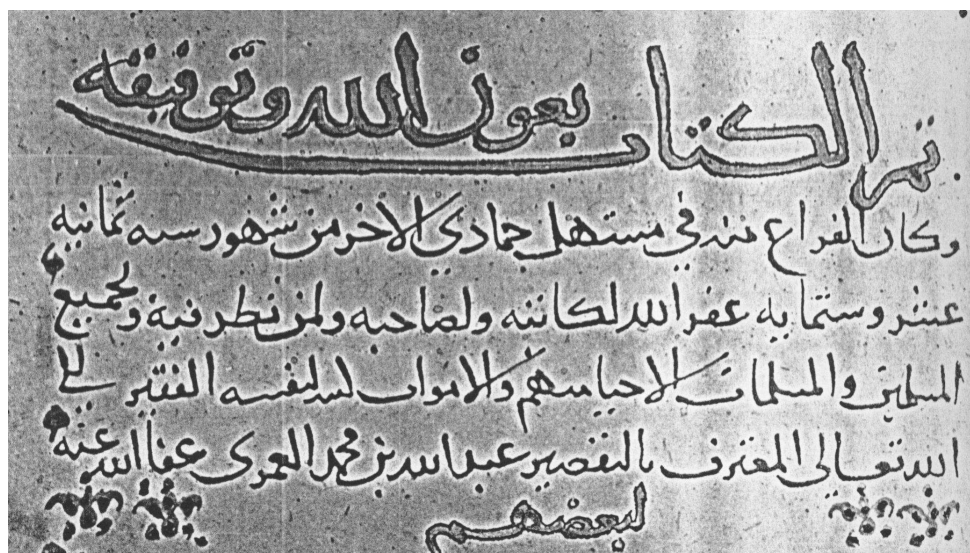 تم الكتاب بعون الله وتوفيقه
وكان الفراغ منه في مستهل جمادى الاخر من شهور سنه ثمانيه
عشر وستمايه غفر الله لكاتبه ولصاحبه ولمن نظر فيه ولجميع
المسلمين والمسلمات الاحيا منهم والاموات لنفسه الفقير الى
الله تعالى المعترف بالتقصير عبد الله بن محمد العمرى عفا الله عنه
لبعضهم